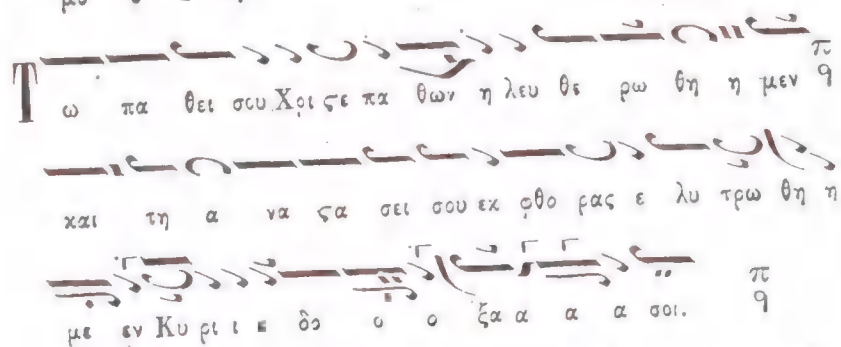 Τω πα θει σου Χρι ϛε πα θων η λευ θε ρω θη η μεν π q
και τη α να ϛα σει σου εκ φθο ρας ε λυ τρω θη η
με εν Κυ ρι ι ε δο ο ο ξα α α α σοι. π q